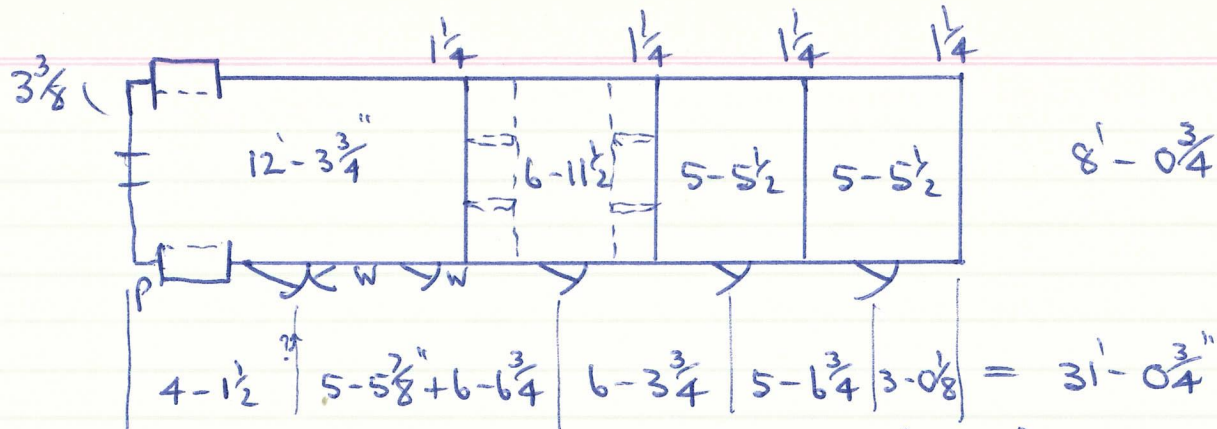 1 1/4 1 1/4 1 1/4 1 1/4
3 3/8
12' - 3 3/4" 6 - 11 1/2 5 - 5 1/2 5 - 5 1/2 8' - 0 3/4
P W W
4 - 1 1/2 ? 5 - 5 7/8" + 6 - 6 3/4 6 - 3 3/4 5 - 6 3/4 3 - 0 1/8 = 31' - 0 3/4"